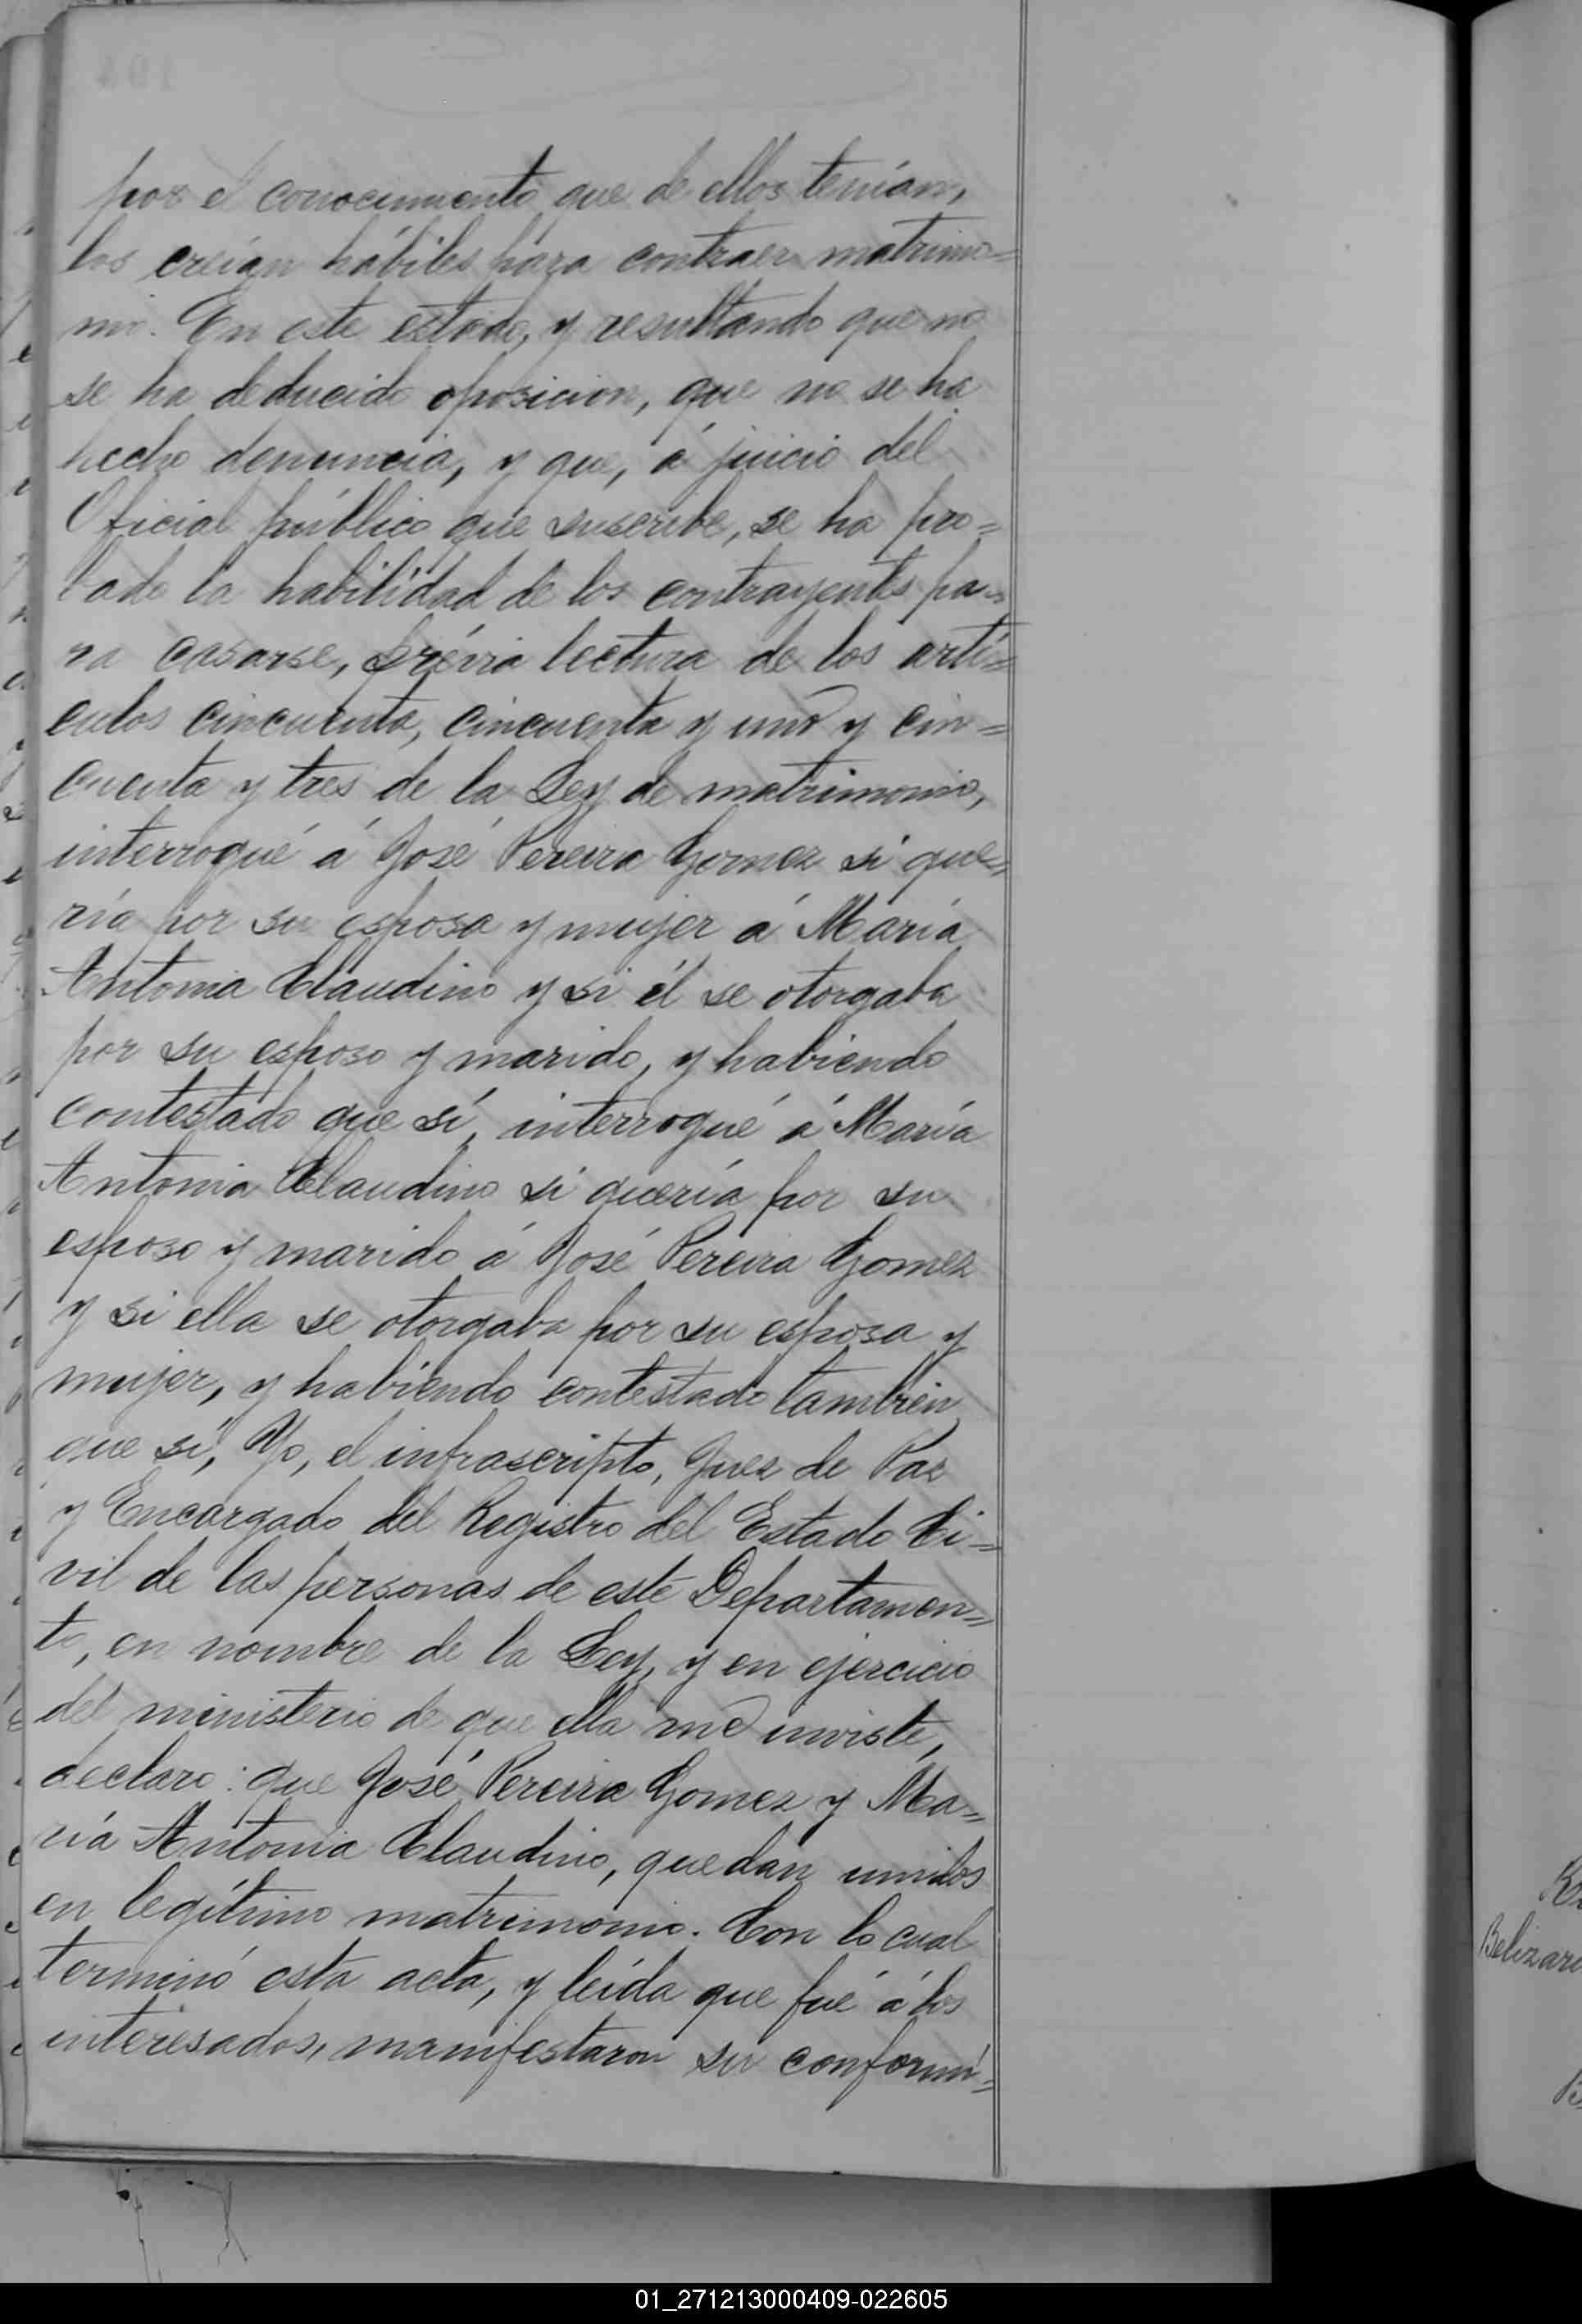 por el conocimiento que de ellos tenían,
los creían hábiles para contraer matrimo=
nio. En este estado, y resultando que no
se ha deducido oposicion, que no se ha
hecho denuncia, y que, á juicio del
Oficial público que suscribe, se ha pro=
bado la habilidad de los contrayentes pa=
ra casarse, prévia lectura de los artí=
culos cincuenta, cincuenta y uno y cin=
cuenta y tres de la Ley de matrimonio,
interrogué á José Pereira Gomez si que=
ría por su esposa y mujer á María
Antonia Claudino y si él se otorgaba
por su esposo y marido, y habiendo
contestado que sí, interrogué á María
Antonia Claudino si quería por su
esposo y marido á José Pereira Gomez
y si ella se otorgaba por su esposa y
mujer, y habiendo contestado también
que sí, Yo, el infrascripto, Juez de Paz
y Encargado del Registro del Estado Ci=
vil de las personas de este Departamen=
to, en nombre de la Ley, y en ejercicio
del ministerio de que ella me inviste,
declaro: que José Pereira Gomez y Ma=
ría Antonia Claudino, quedan unidos
en legítimo matrimonio. Con lo cual
terminó esta acta, y leída que fué á los
interesados, manifestaron su conformi=
Belizari
01_271213000409-022605